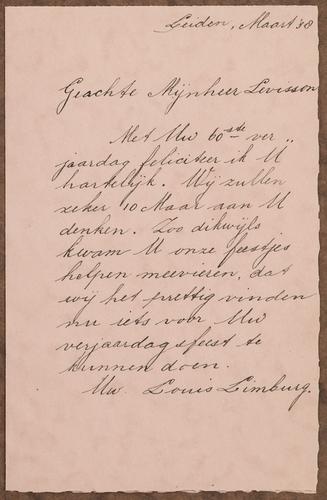 Leiden, Maart '38
Geachte Mijnheer Levisson
Met Uw 60ste ver
jaardag feliciteer ik U
hartelijk. Wij zullen
zeker 10 Maar aan U
denken. Zoo dikwijls
kwam U onze feestjes
helpen meevieren, dat
wij het prettig vinden
nu iets voor Uw
verjaardagsfeest te
kunnen doen.
Uw. Louis Limburg.